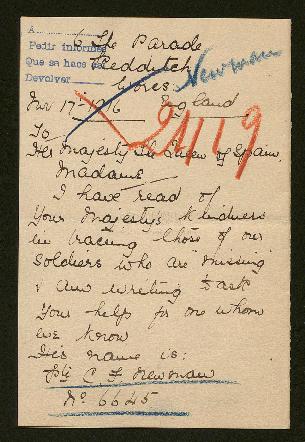 A
Pedir informes
Que se hace
Devolver
6 The Parade
Redditch
Worcs.
Newman
Nov 17-1916 England
24119
To
Her Majesty The Queen of Spain
Madame
I have read of
Your Majesty's kindness
in tracing those of our
soldiers who are missing
& am writing to ask
Your help for one whom
we know
His name is:
Pte C. F. Newman
No 6645